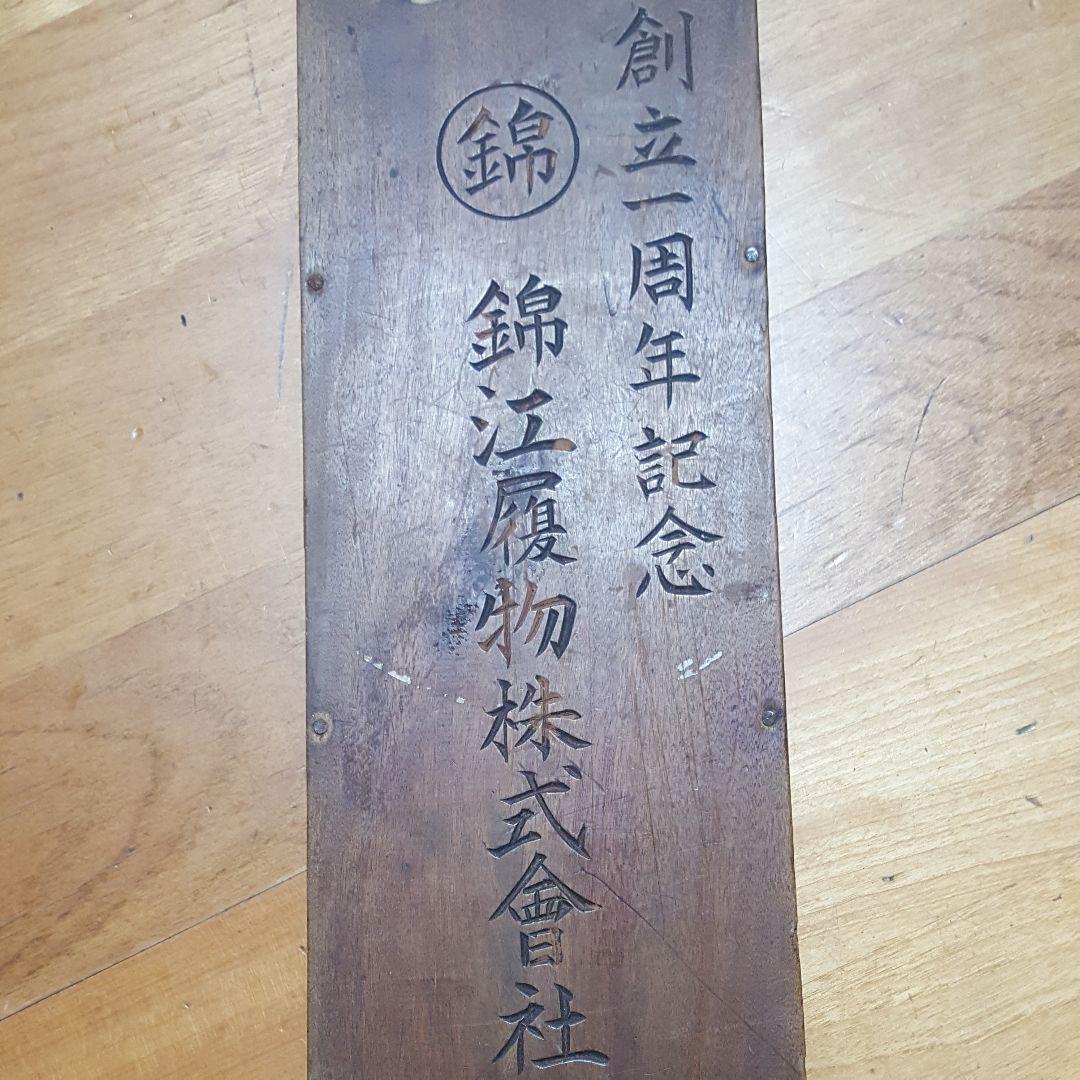 創立一周年記念
錦
錦江履物株式會社